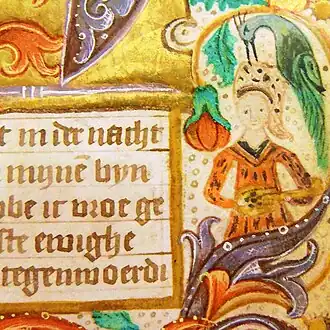 t in der nacht
mynē vyn
bbe ic vroe ge
ste ewighe
tegenwoerdi